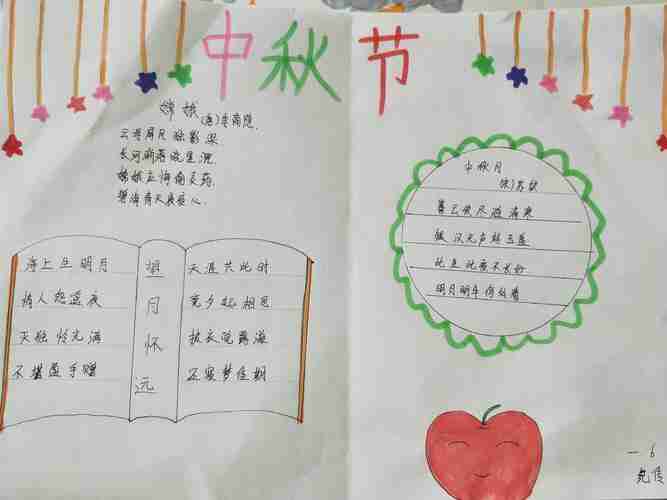 中秋节
嫦娥
(唐)李商隐.
云母屏风烛影深.
长河渐落晓星沉.
嫦娥应悔偷灵药.
碧海青天夜夜心.
海上生明月
情人怨遥夜
灭烛怜光满
不堪盈手赠
望月怀远
天涯共此时
竟夕起相思
披衣觉露滋
还寝梦佳期
中秋月
(宋)苏轼
暮云收尽溢清寒
银汉无声转玉盘
此生此夜不长好
明月明年何处看
一 6